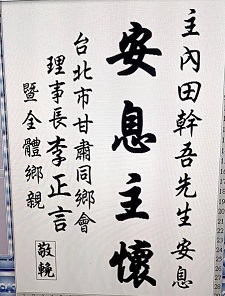 主內田幹吾先生安息
安息主懷
台北市甘肅同鄉會
理事長李正言
暨全體鄉親
敬輓